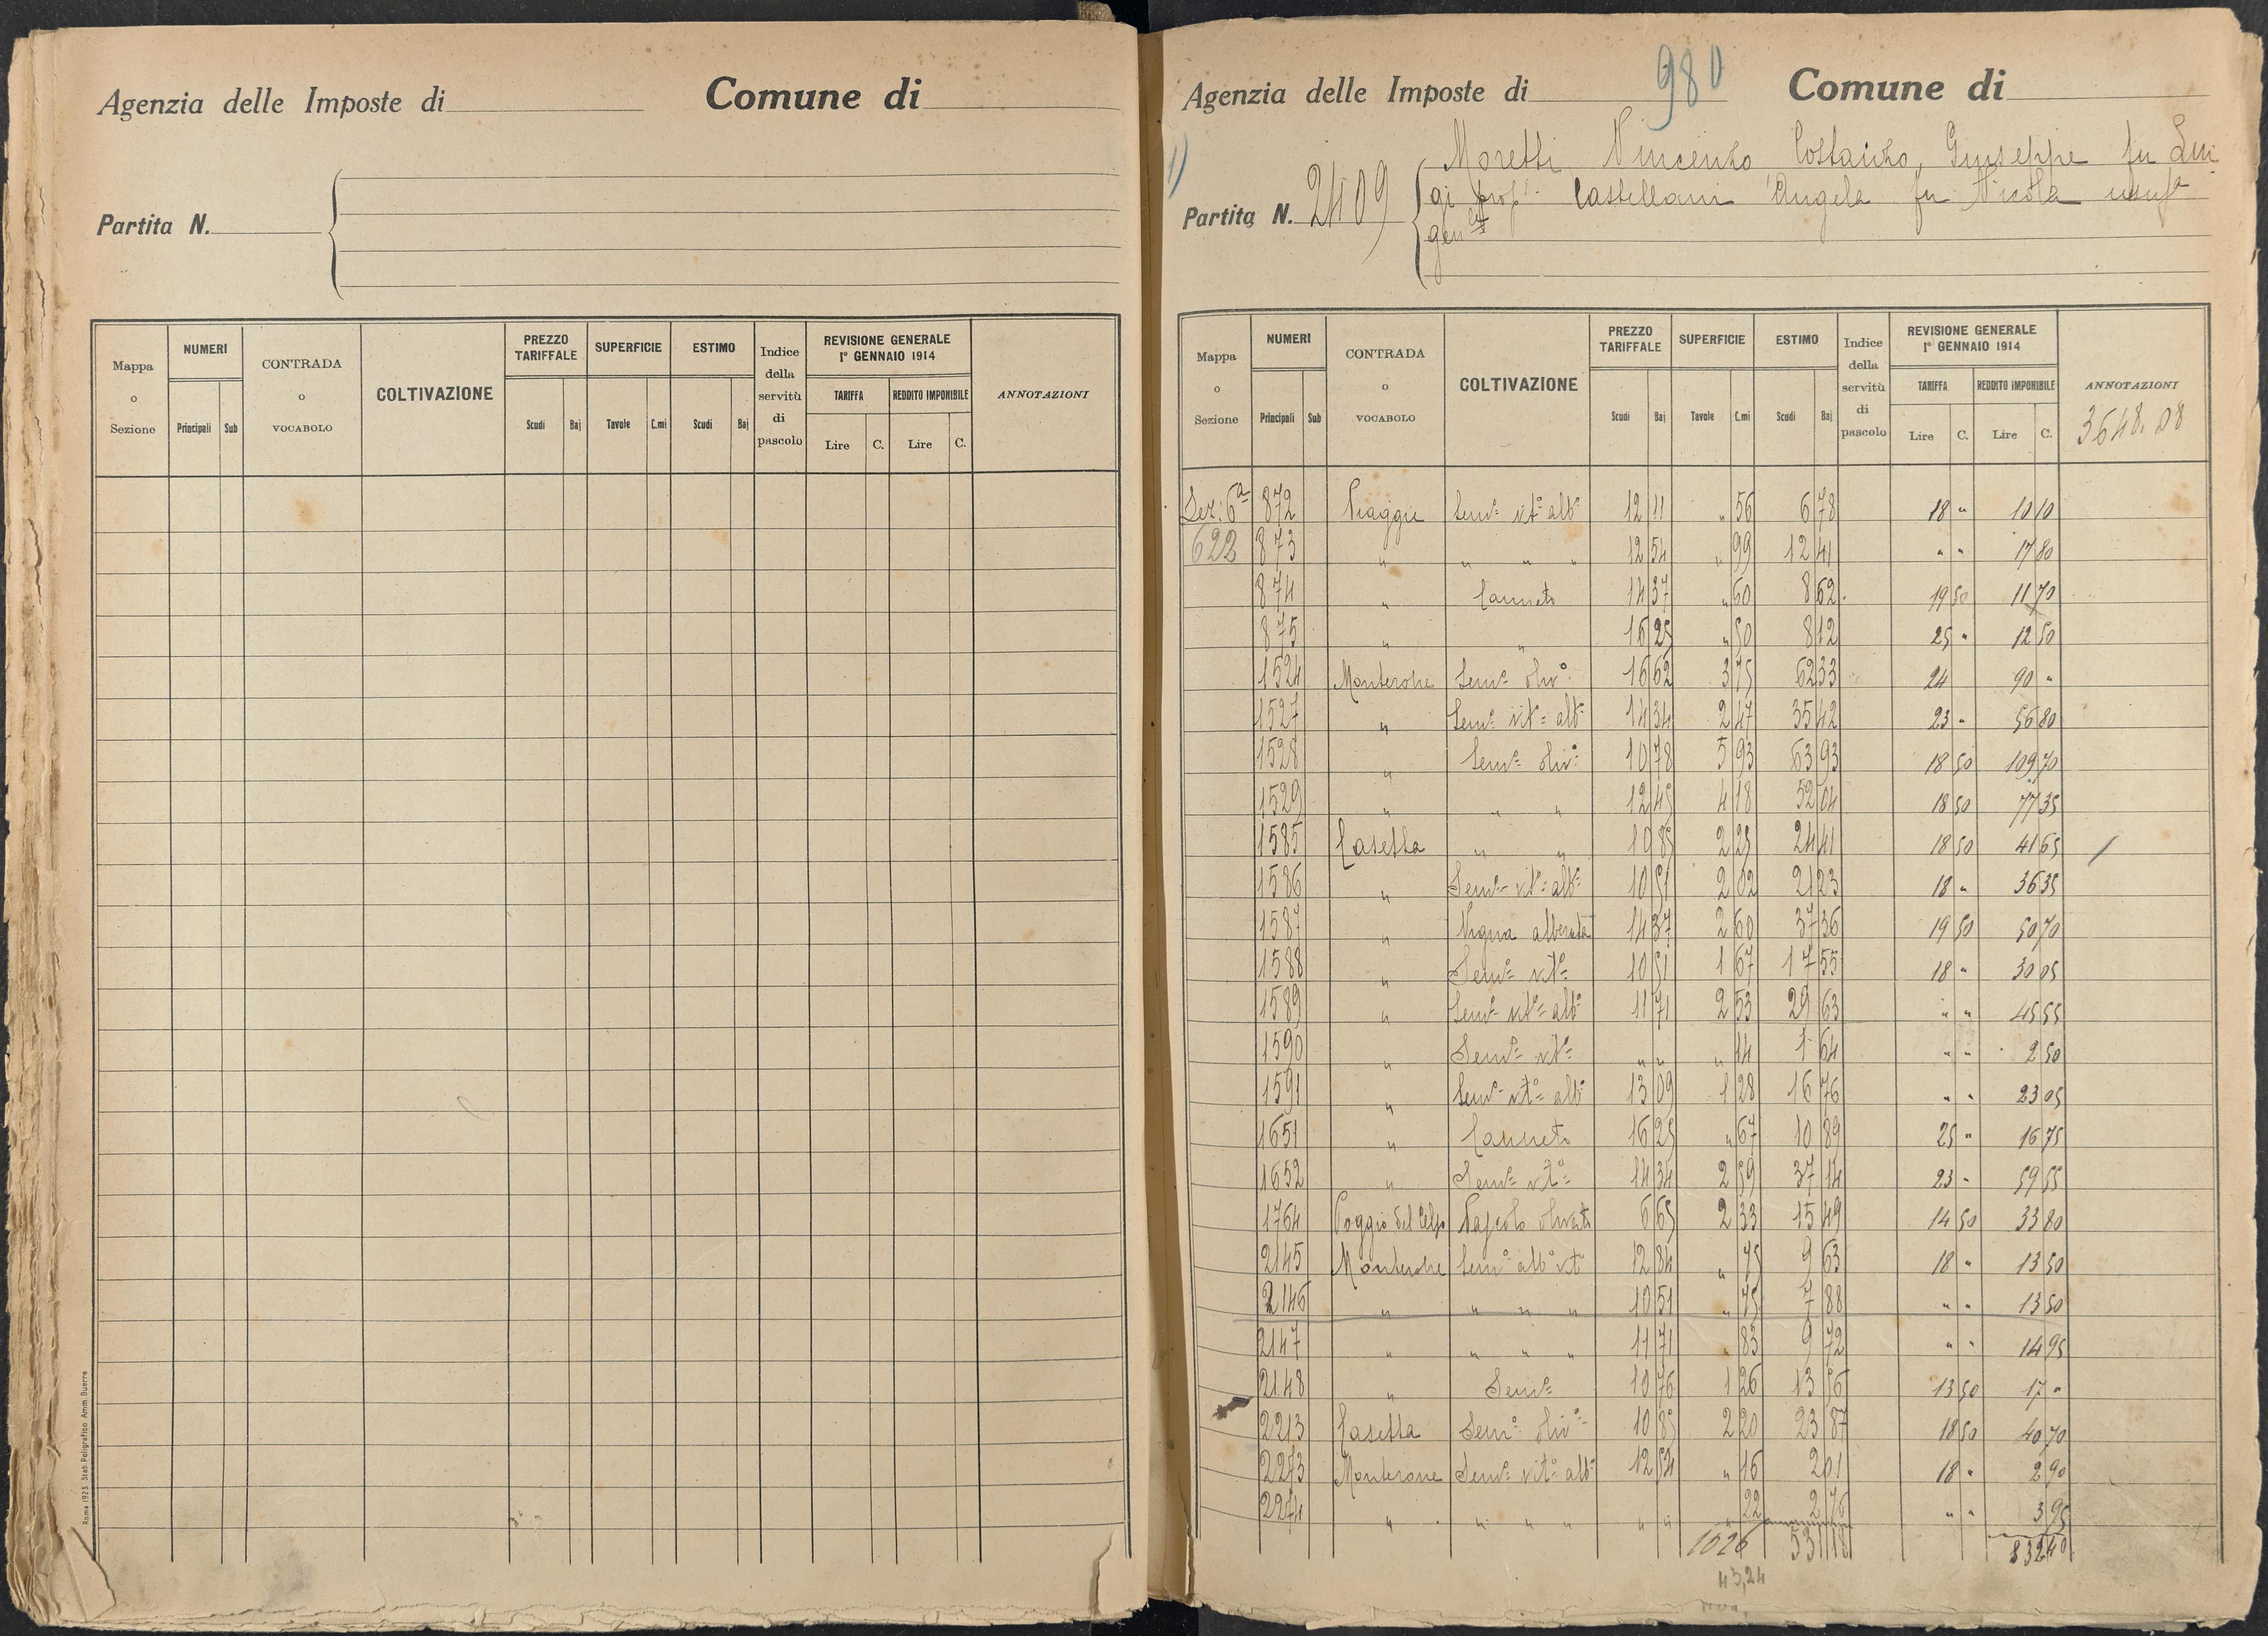 Agenzia delle Imposte di Comune di
Partita N.
Mappa o Sezione NUMERI Principali Sub CONTRADA o VOCABOLO COLTIVAZIONE PREZZO TARIFFALE Scudi Baj SUPERFICIE Tavole C.mi ESTIMO Scudi Baj Indice della servitù di pascolo REVISIONE GENERALE 1° GENNAIO 1914 TARIFFA Lire C. REDDITO IMPONIBILE Lire C. ANNOTAZIONI
Roma 1923 Stab. Poligrafico Amm. Guerra
980
Agenzia delle Imposte di Comune di
1)
Moretti Vincenzo Costanzo, Giuseppe fu Lui
Partita N. 2409 gi prop.i Castellani Angela fu Nicola usuf.a
gen
Mappa o Sezione NUMERI Principali Sub CONTRADA o VOCABOLO COLTIVAZIONE PREZZO TARIFFALE Scudi Baj SUPERFICIE Tavole C.mi ESTIMO Scudi Baj Indice della servitù di pascolo REVISIONE GENERALE 1° GENNAIO 1914 TARIFFA Lire C. REDDITO IMPONIBILE Lire C. ANNOTAZIONI
3648.08
Sez: 6a 872 Piaggie Sem.o vit.o alb.o 12 11 " 56 6 78 18 " 10 10
622 873 " " " " 12 54 " 99 12 41 " " 17 80
874 " Canneto 14 37 " 60 8 62 19 50 11 70
875 " " 16 25 " 50 8 12 25 " 12 50
1524 Monterone Sem.o oliv.o 16 62 3 75 62 33 24 90 "
1527 " Sem.o vit.o alb.o 14 34 2 47 35 42 23 " 56 80
1528 " Sem.o oliv.o 10 78 5 93 63 93 18 50 109 70
1529 " " " 12 45 4 18 52 04 18 50 77 35
1585 Casetta " " 10 85 2 25 24 41 18 50 41 65
1586 " Sem.o vit.o alb.o 10 51 2 02 21 23 18 " 36 35
1587 " Vigna alberata 14 37 2 60 37 36 19 50 50 70
1588 " Sem.o vit.o 10 51 1 67 17 55 18 " 30 05
1589 " Sem.o vit.o alb.o 11 71 2 53 29 63 " " 45 55
1590 " Sem.o vit.o " " " 14 1 64 " " 2 50
1591 " Sem.o vit.o alb.o 13 09 1 28 16 76 " " 23 05
1651 " Canneto 16 25 " 67 10 89 25 " 16 75
1652 " Sem.o vit.o 14 34 2 59 37 14 23 " 59 55
1764 Poggio del Celso Pascolo olivato 6 65 2 33 15 49 14 50 33 80
2145 Monterone Sem.o alb.o vit.o 12 84 " 75 9 63 18 " 13 50
2146 " " " " 10 51 " 75 7 88 " " 13 50
2147 " " " " 11 71 " 83 9 72 " " 14 95
2148 " Sem.o 10 76 1 26 13 56 13 50 17 "
2213 Casetta Sem.o oliv.o 10 85 2 20 23 87 18 50 40 70
2273 Monterone Sem.o vit.o alb.o 12 54 " 16 2 01 18 " 2 90
2274 " " " " " " " 22 2 76 " " 3 95
1026 531 18 832 40
43,24